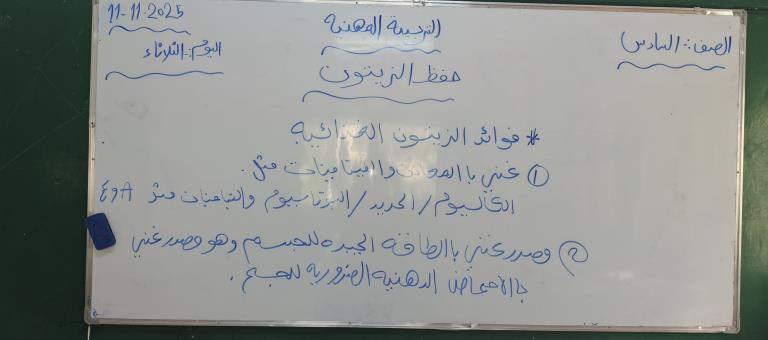 التربية المهنية
11-11-2025
الصف: السادس
اليوم: الثلاثاء
حفظ الزيتون
* فوائد الزيتون الغذائية
① غني بالمعادن والفيتامينات مثل.
الكالسيوم / الحديد / البوتاسيوم والفيتامينات مثل A و E
② مصدر غني بالطاقة الجيده للجسم وهو مصدر غني
بالأحماض الدهنية الضرورية للجسم.